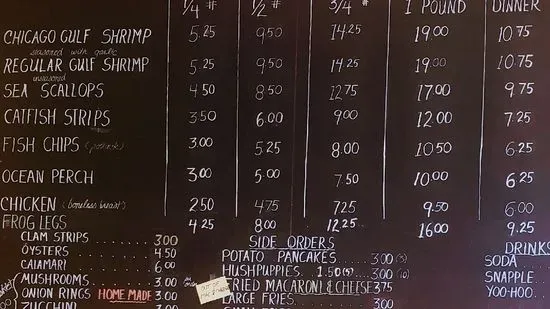 1/4 # 1/2 # 3/4 # 1 POUND DINNER
CHICAGO GULF SHRIMP 5.25 9.50 14.25 19.00 10.75
seasoned with garlic
REGULAR GULF SHRIMP 5.25 9.50 14.25 19.00 10.75
unseasoned
SEA SCALLOPS 4.50 8.50 12.75 17.00 9.75
CATFISH STRIPS 3.50 6.00 9.00 12.00 7.25
FISH CHIPS 3.00 5.25 8.00 10.50 6.25
OCEAN PERCH 3.00 5.00 7.50 10.00 6.25
CHICKEN (boneless breast) 2.50 4.75 7.25 9.50 6.00
FROG LEGS 4.25 8.00 12.25 16.00 9.25
CLAM STRIPS . . . . 3.00
OYSTERS . . . . 4.50
CALAMARI . . . . 6.00
MUSHROOMS . . . . 3.00
ONION RINGS HOME MADE 3.00
ZUCCHINI 3.00
SIDE ORDERS
POTATO PANCAKES . . . . 3.00 (3)
HUSHPUPPIES. 1.50(5). . . 3.00
FRIED MACARONI & CHEESE 3.75
LARGE FRIES . . . . 3.00
DRINKS
SODA . . .
SNAPPLE . .
YOO-HOO . . .